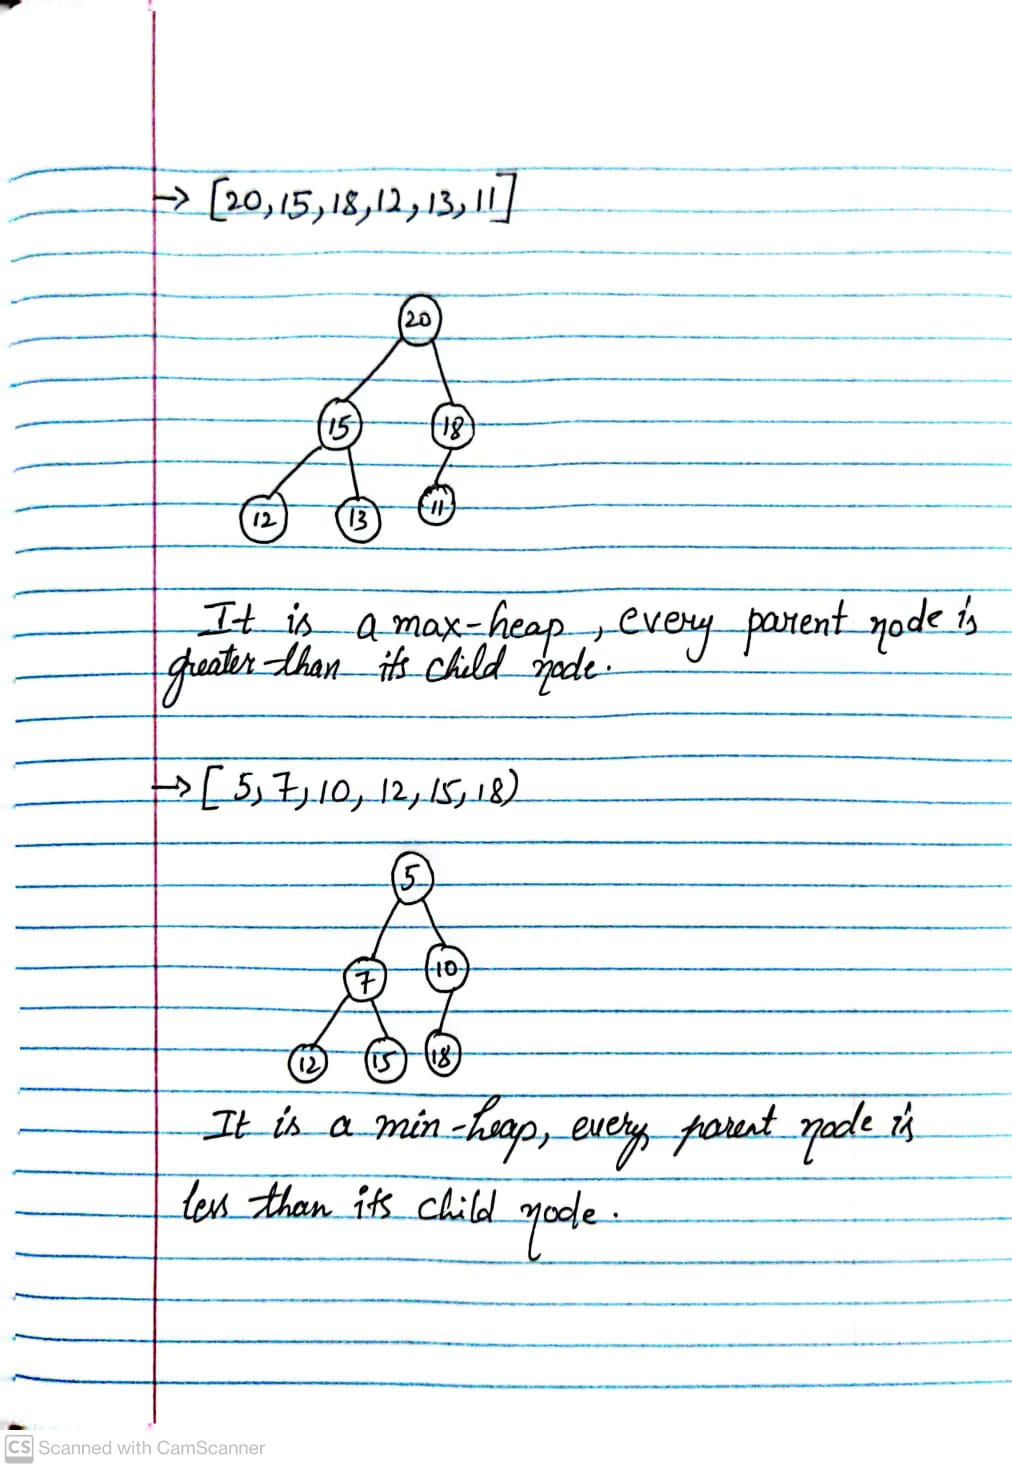 → [20, 15, 18, 12, 13, 11]
20
15 18
12 13 11
It is a max-heap, every parent node is
greater than its child node.
→ [5, 7, 10, 12, 15, 18)
5
7 10
12 15 18
It is a min-heap, every parent node is
less than its child node.
CS Scanned with CamScanner